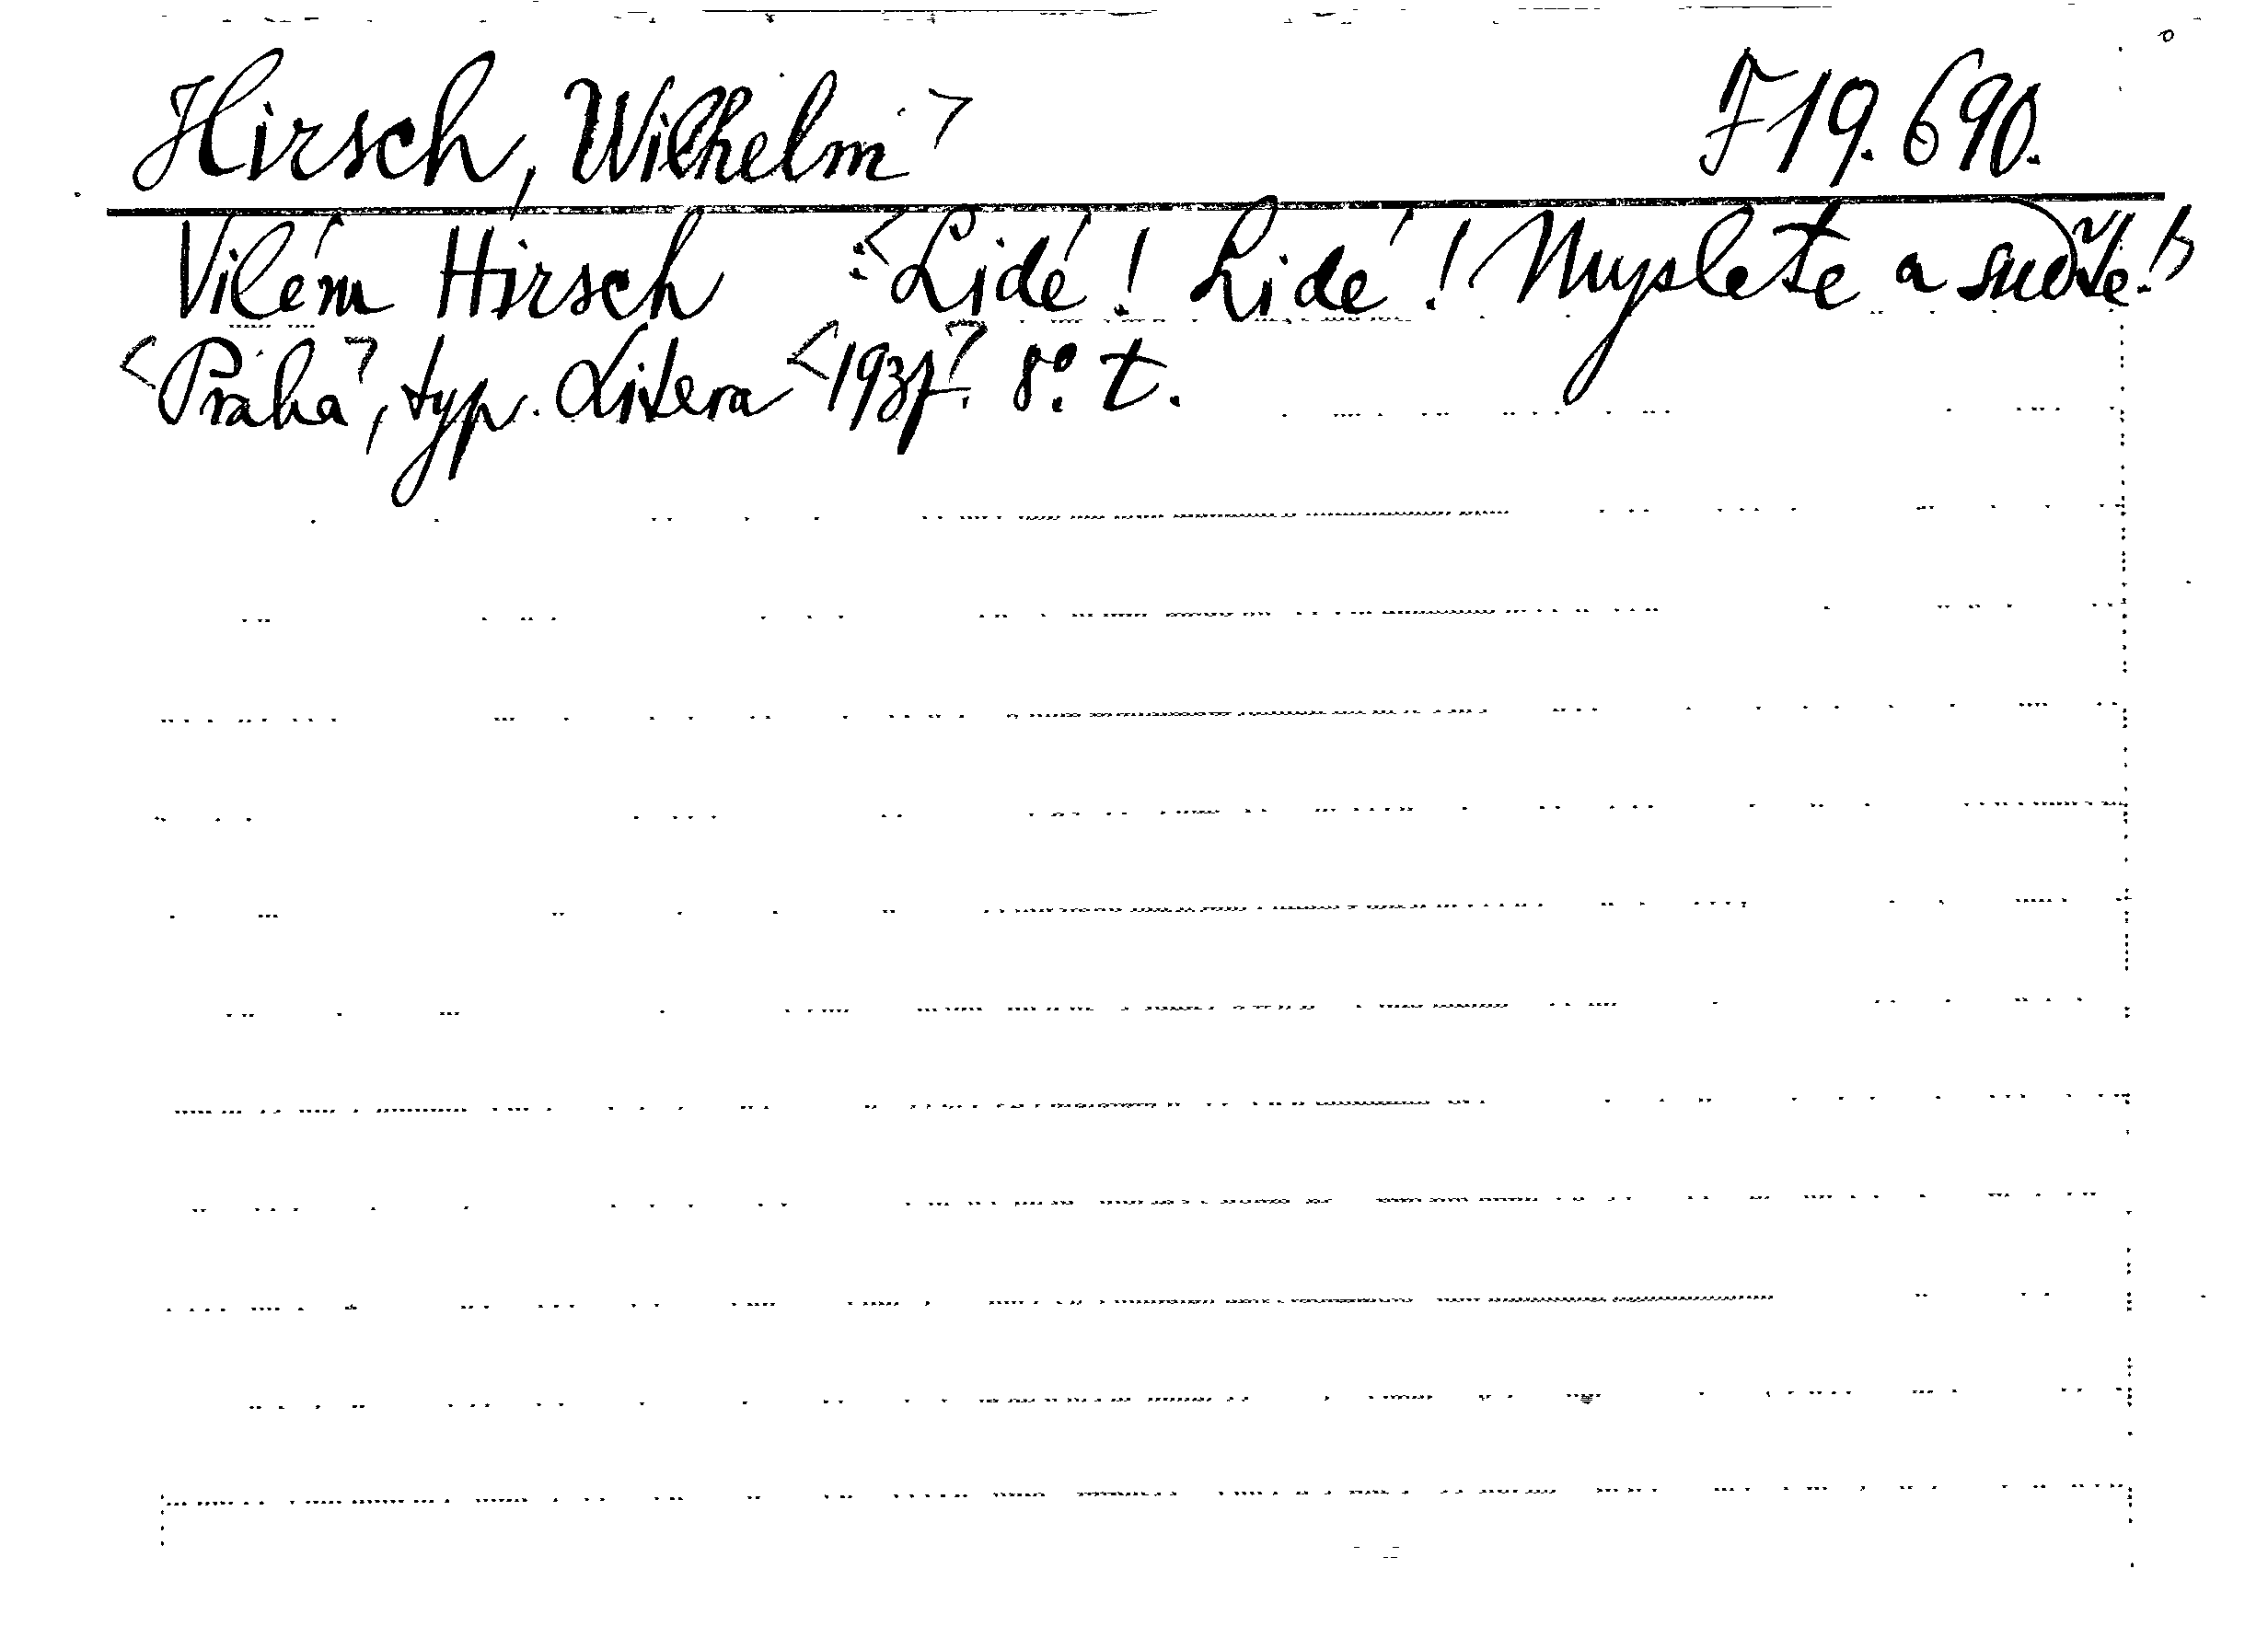 Hirsch, Wilhelm> F 19.690.
Vilém Hirsch :<Lidé! Lidé! Myslete a suďte!>
<Praha>, typ. Litera <1937>. 8°. t.